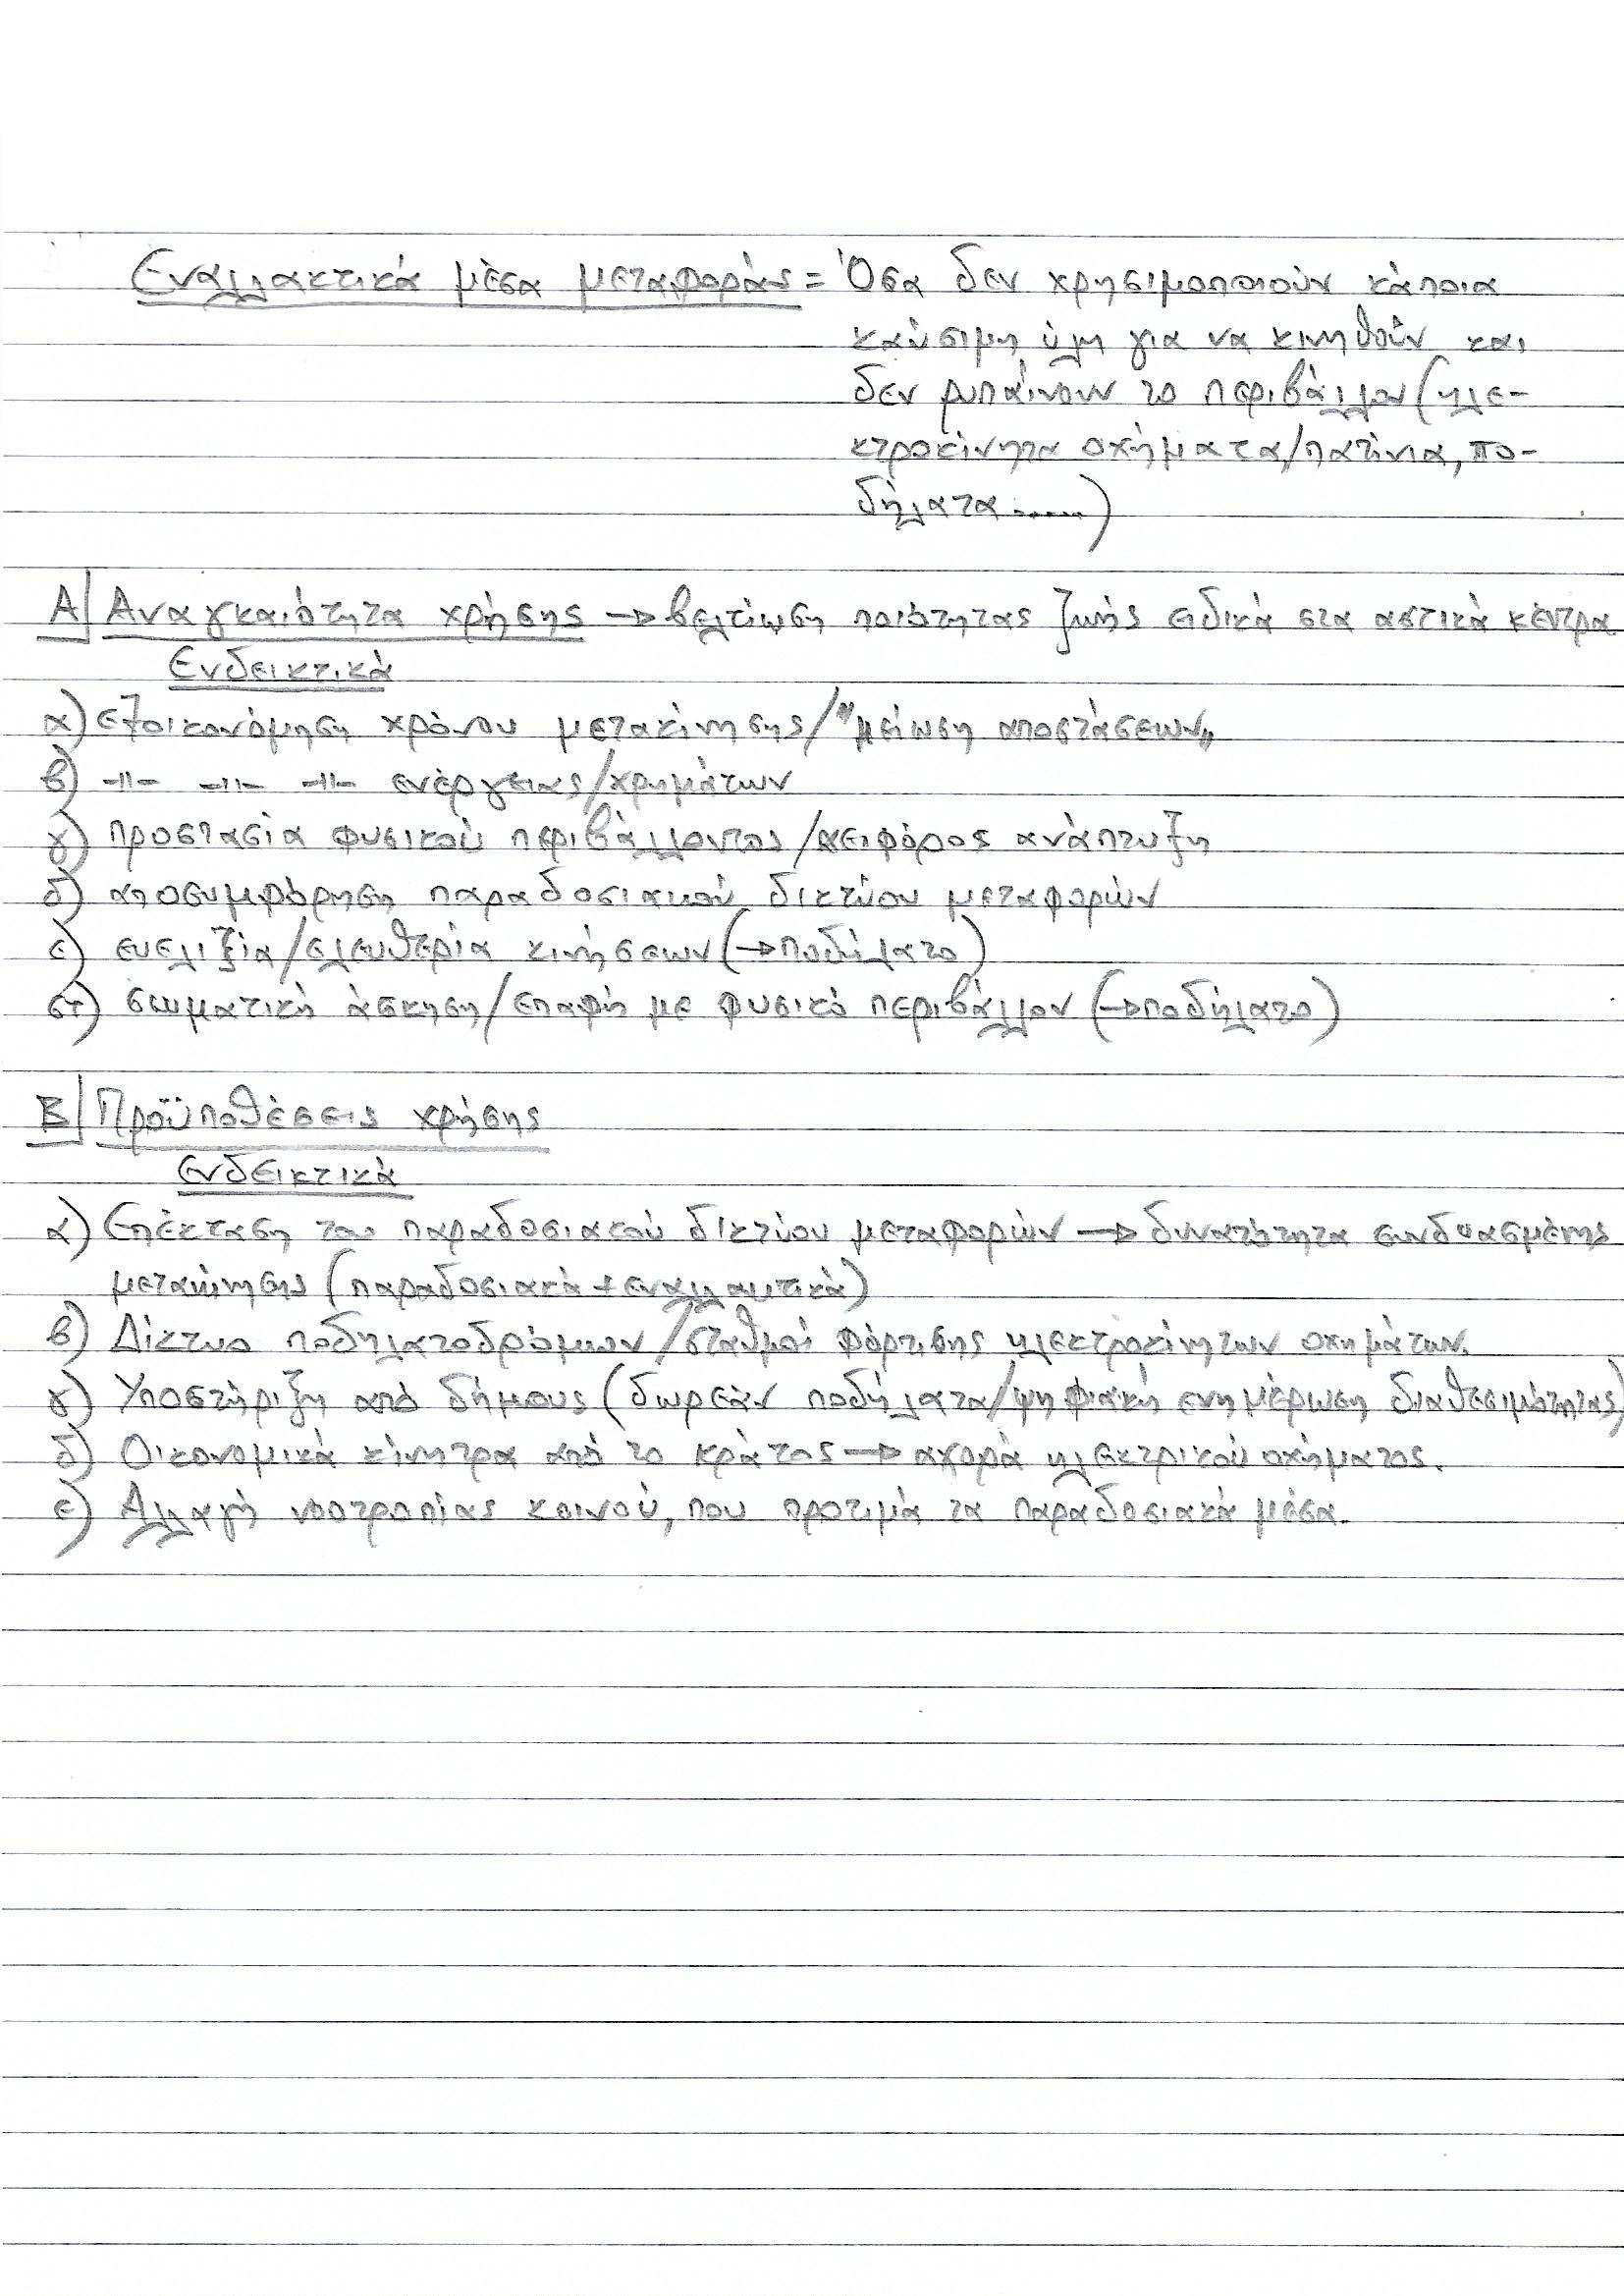 Εναλλακτικά μέσα μεταφοράς = Όσα δεν χρησιμοποιούν κάποια
καύσιμη ύλη για να κινηθούν και
δεν ρυπαίνουν το περιβάλλον (ηλε-
κτροκίνητα οχήματα/πατίνια, πο-
δήλατα......)
Α| Αναγκαιότητα χρήσης → βελτίωση ποιότητας ζωής ειδικά στα αστικά κέντρα.
Ενδεικτικά
α) εξοικονόμηση χρόνου μετακίνησης/"μείωση αποστάσεων"
β) -//- -//- -//- ενέργειας/χρημάτων
γ) προστασία φυσικού περιβάλλοντος/αειφόρος ανάπτυξη
δ) αποσυμφόρηση παραδοσιακού δικτύου μεταφορών
ε) ευελιξία/ελευθερία κινήσεων (→ποδήλατο)
στ) σωματική άσκηση/επαφή με φυσικό περιβάλλον (→ποδήλατο)
Β| Προϋποθέσεις χρήσης
ενδεικτικά
α) Επέκταση του παραδοσιακού δικτύου μεταφορών → δυνατότητα συνδυασμένης
μετακίνησης (παραδοσιακά + εναλλακτικά)
β) Δίκτυο ποδηλατοδρόμων/σταθμοί φόρτισης ηλεκτροκίνητων οχημάτων.
γ) Υποστήριξη από δήμους (δωρεάν ποδήλατα/ψηφιακή ενημέρωση διαθεσιμότητας)
δ) Οικονομικά κίνητρα από το κράτος → αγορά ηλεκτρικού οχήματος.
ε) Αλλαγή νοοτροπίας κοινού, που προτιμά τα παραδοσιακά μέσα.